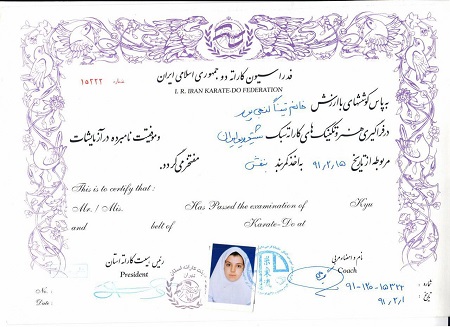 فدراسیون کاراته دو جمهوری اسلامی ایران
شماره ۱۵۳۲۲
I. R. IRAN KARATE-DO FEDERATION
به پاس کوششهای با ارزش خانم
در فراگیری هنر و تکنیک های کاراته سبک و موفقیت نامبرده در آزمایشات
مربوطه از تاریخ ۹۱,۲,۱۵ به اخذ کمربند بنفش مفتخر می گردد.
This is to certify that :
Mr. / Mis. Has Passed the examination of Kyu
and belt of Karate-Do at
رئیس هیئت کاراته استان
President
نام و امضاء مربی
Coach
No :
Date :
شماره :
تاریخ : ۹۱,۲,۱